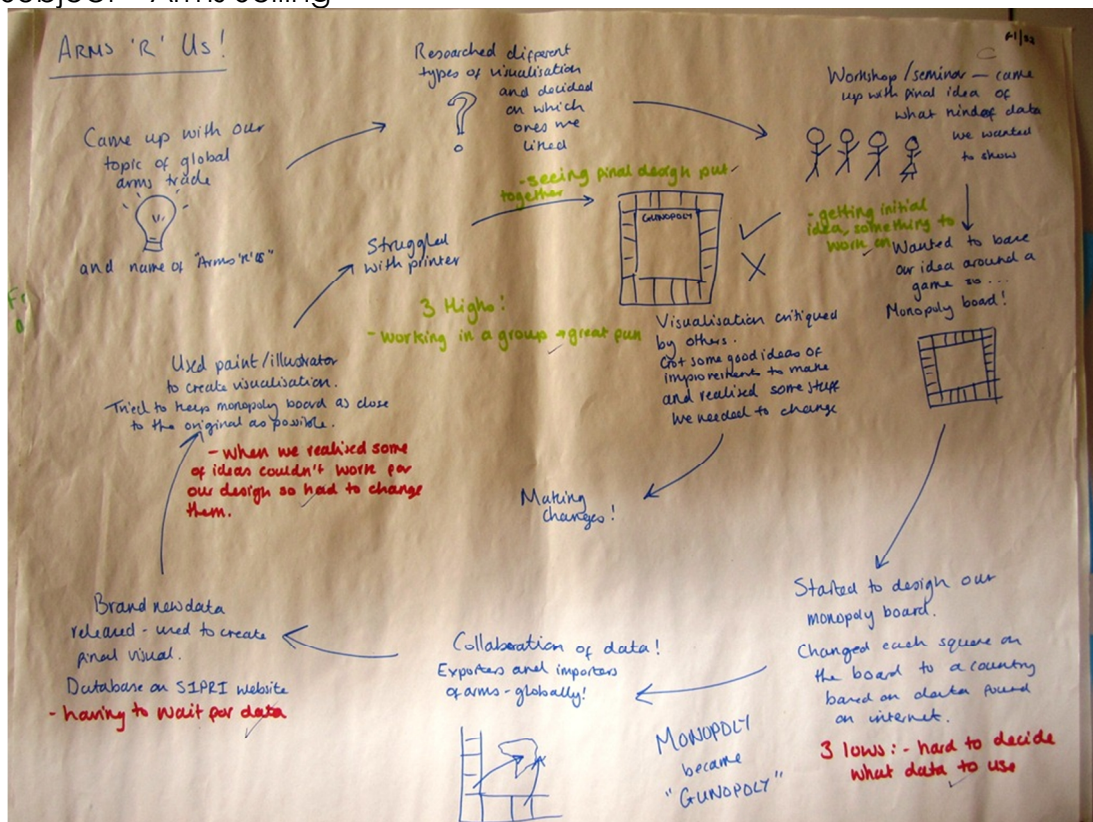 ARMS 'R' US!
Came up with our
topic of global
arms trade
and name of "Arms 'R' US"
Researched different
types of visualisation
and decided
on which
ones we
liked
?
Workshop/seminar – came
up with final idea of
what kind of data
we wanted
to show
- getting initial
idea, something to
work on
Wanted to base
our idea around a
game so ...
Monopoly board!
Started to design our
monopoly board.
Changed each square on
the board to a country
based on data found
on internet.
3 lows: - hard to decide
what data to use
MONOPOLY
became
"GUNOPOLY"
Collaboration of data!
Exporters and importers
of arms - globally!
Brand new data
released - used to create
final visual.
Database on SIPRI website
- having to wait for data
Used paint/illustrator
to create visualisation.
Tried to keep monopoly board as close
to the original as possible.
- when we realised some
of ideas couldn't work for
our design so had to change
them.
Struggled
with printer
- seeing final design put
together
GUNOPOLY
3 Highs!
- working in a group → great fun
Visualisation critiqued
by others.
Got some good ideas of
improvements to make
and realised some stuff
we needed to change
Making
changes!